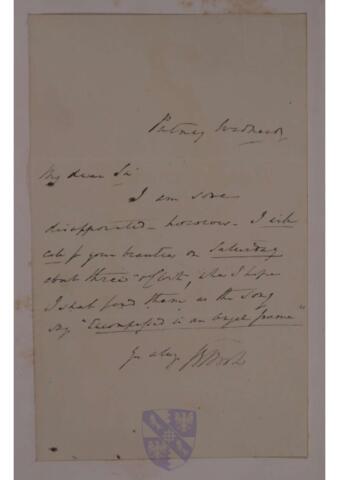 Putney Wednesday
My dear Sir
I am sore
disappointed – however – I will
call for your beauties on Saturday
about three o'Clock, when I hope
I shall find them as the song
says "Encompassed in an Angel frame"
Yrs alwys